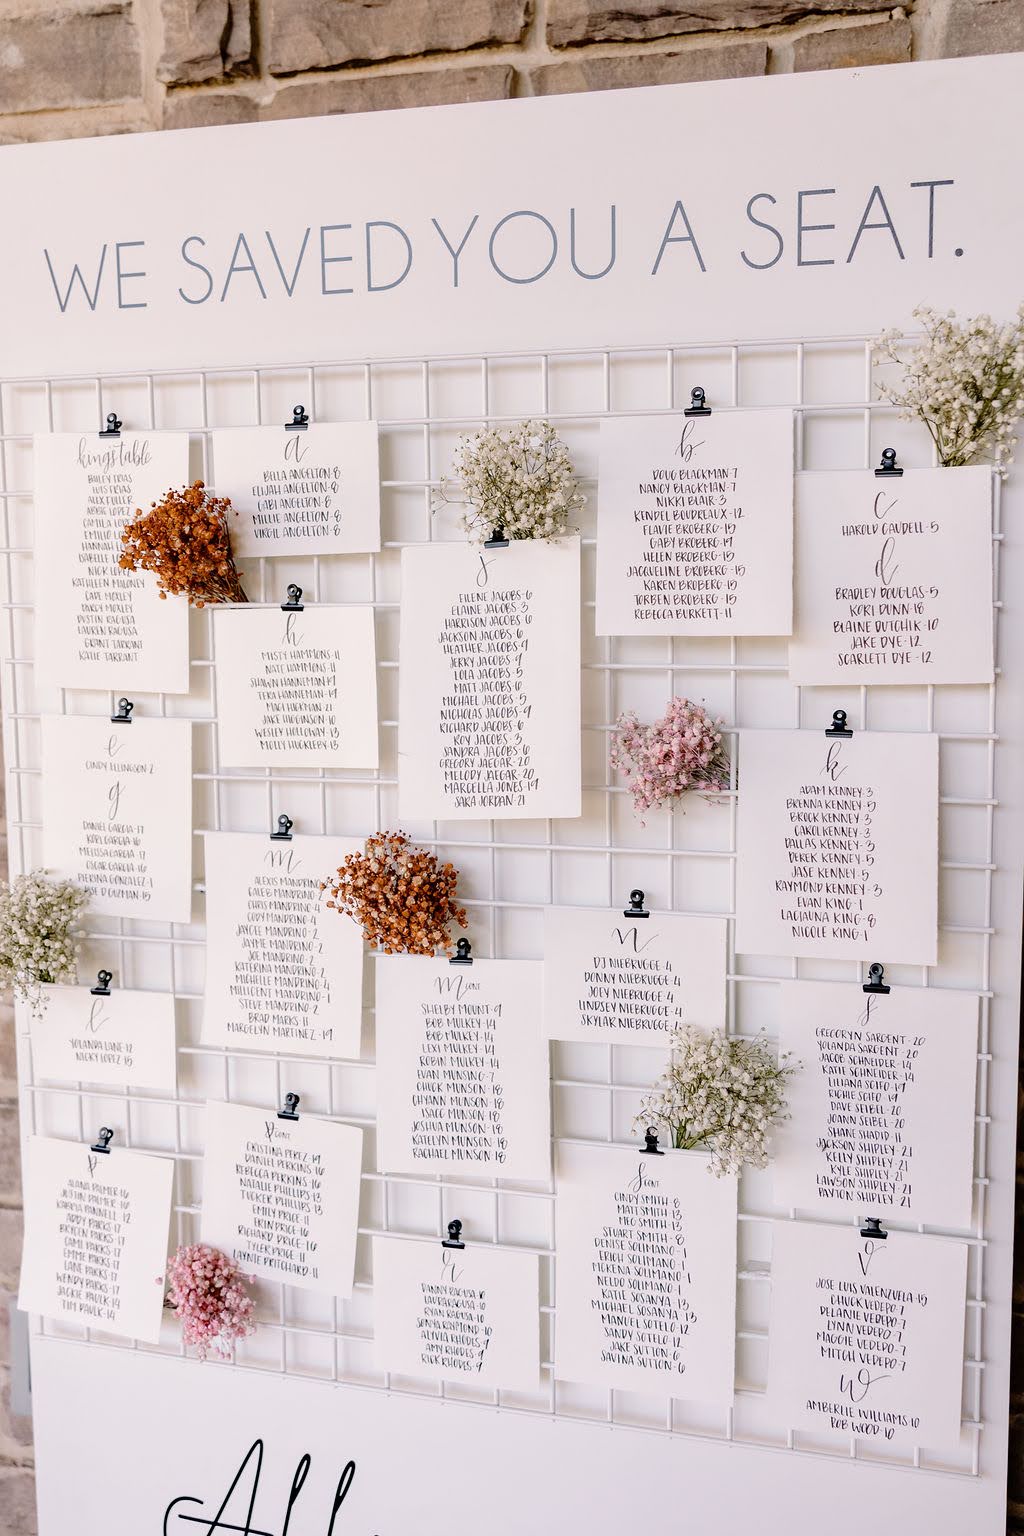 WE SAVED YOU A SEAT.
king's table
BAILEY FRIAS
LUIS FRIAS
ALEX FULLER
ABBIE LOPEZ
CAMILA
EMILIO
HANNAH
ISABELLE
NICK LOPEZ
KATHLEEN MALONEY
CADE MOXLEY
DARCY MOXLEY
DUSTIN RAGUSA
LAUREN RAGUSA
GRANT TARRANT
KATIE TARRANT
a
BELLA ANGELTON-8
ELIJAH ANGELTON-8
GABI ANGELTON-8
MILLIE ANGELTON-8
VIRGIL ANGELTON-8
b
DOUG BLACKMAN-7
NANCY BLACKMAN-7
NIKKI BLAIR-3
KENDEL BOUDREAUX-12
FLAVIE BROBERG-15
GABY BROBERG-19
HELEN BROBERG-15
JACQUELINE BROBERG-15
KAREN BROBERG-15
TORBEN BROBERG-15
REBECCA BURKETT-11
c
HAROLD CAUDELL-5
d
BRADLEY DOUGLAS-5
KORI DUNN-18
BLAINE DUTCHIK-10
JAKE DYE-12
SCARLETT DYE-12
e
CINDY ELLINGSON-2
g
DANIEL GARCIA-17
KORI GARCIA-16
MELISSA GARCIA-17
OSCAR GARCIA-16
PIERINA GONZALEZ-1
JOSE D GUZMAN-15
h
MISTY HAMMONS-11
NATE HAMMONS-11
SHAWN HANNEMAN-19
TERA HANNEMAN-19
MACI HICKMAN-21
JAKE HIGGINSON-10
WESLEY HOLLOWAY-13
MOLLY HUCKLEBY-13
j
EILENE JACOBS-6
ELAINE JACOBS-3
HARRISON JACOBS-6
JACKSON JACOBS-6
HEATHER JACOBS-9
JERRY JACOBS-9
LOLA JACOBS-5
MATT JACOBS-6
MICHAEL JACOBS-5
NICHOLAS JACOBS-9
RICHARD JACOBS-6
ROY JACOBS-3
SANDRA JACOBS-6
GREGORY JAEGAR-20
MELODY JAEGAR-20
MARCELLA JONES-19
SARA JORDAN-21
k
ADAM KENNEY-3
BRENNA KENNEY-5
BROCK KENNEY-3
CAROL KENNEY-3
DALLAS KENNEY-3
DEREK KENNEY-5
JASE KENNEY-5
RAYMOND KENNEY-3
EVAN KING-1
LAGIAUNA KING-8
NICOLE KING-1
l
YOLANDA LANE-12
NICKY LOPEZ-15
m
ALEXIS MANDRINO
CALEB MANDRINO-2
CHRIS MANDRINO-4
CODY MANDRINO-4
JAYCEE MANDRINO-2
JAYME MANDRINO-2
JOE MANDRINO-2
KATERINA MANDRINO-2
MICHELLE MANDRINO-4
MILLICENT MANDRINO-1
STEVE MANDRINO-2
BRAD MARKS-11
MARGELYN MARTINEZ-19
m CONT
SHELBY MOUNT-9
BOB MULKEY-14
BOB MULKEY-14
LEXI MULKEY-14
ROBIN MULKEY-14
EVAN MUNSING-7
CHUCK MUNSON-18
CHYANN MUNSON-18
ISACC MUNSON-18
JOSHUA MUNSON-18
KATELYN MUNSON-18
RACHAEL MUNSON-18
n
DJ NIEBRUGGE-4
DONNY NIEBRUGGE-4
JOEY NIEBRUGGE-4
LINDSEY NIEBRUGGE-4
SKYLAR NIEBRUGGE-4
p
ALANA PALMER-16
JUSTIN PALMER-16
KABRYA PANNELL-12
ADDY PARKS-17
BRYCEN PARKS-17
CAMI PARKS-17
EMME PARKS-17
LANE PARKS-17
WENDY PARKS-17
JACKIE PAULK-14
TIM PAULK-14
p CONT
CRISTINA PEREZ-19
DANIEL PERKINS-16
REBECCA PERKINS-16
NATALIE PHILLIPS-13
TUCKER PHILLIPS-13
EMILY PRICE-11
ERIN PRICE-16
RICHARD PRICE-16
TYLER PRICE-11
LAYNIE PRITCHARD-11
r
DANNY RAGUSA-10
LAURA RAGUSA-10
RYAN RAGUSA-10
SONYA RAYMOND-10
ALYVIA RHODES-9
AMY RHODES-9
RICK RHODES-9
s
GREGORY N SARGENT-20
YOLANDA SARGENT-20
JACOB SCHNEIDER-14
KATIE SCHNEIDER-14
LILIANA SCIFO-19
RICHIE SCIFO-19
DAVE SEIBEL-20
JOANN SEIBEL-20
SHANE SHADID-11
JACKSON SHIPLEY-21
KELLY SHIPLEY-21
KYLE SHIPLEY-21
LAWSON SHIPLEY-21
PAYTON SHIPLEY-21
s CONT
CINDY SMITH-8
MATT SMITH-13
MEG SMITH-13
STUART SMITH-8
DENISE SOLIMANO-1
ERICH SOLIMANO-1
MCKENA SOLIMANO-1
NELDO SOLIMANO-1
KATIE SOSANYA-13
MICHAEL SOSANYA-13
MANUEL SOTELO-12
SANDY SOTELO-12
JAKE SUTTON-6
SAVINA SUTTON-6
v
JOSE LUIS VALENZUELA-15
CHUCK VEDEPO-7
DELANIE VEDEPO-7
LYNN VEDEPO-7
MAGGIE VEDEPO-7
MITCH VEDEPO-7
w
AMBERLIE WILLIAMS-10
ROB WOOD-10